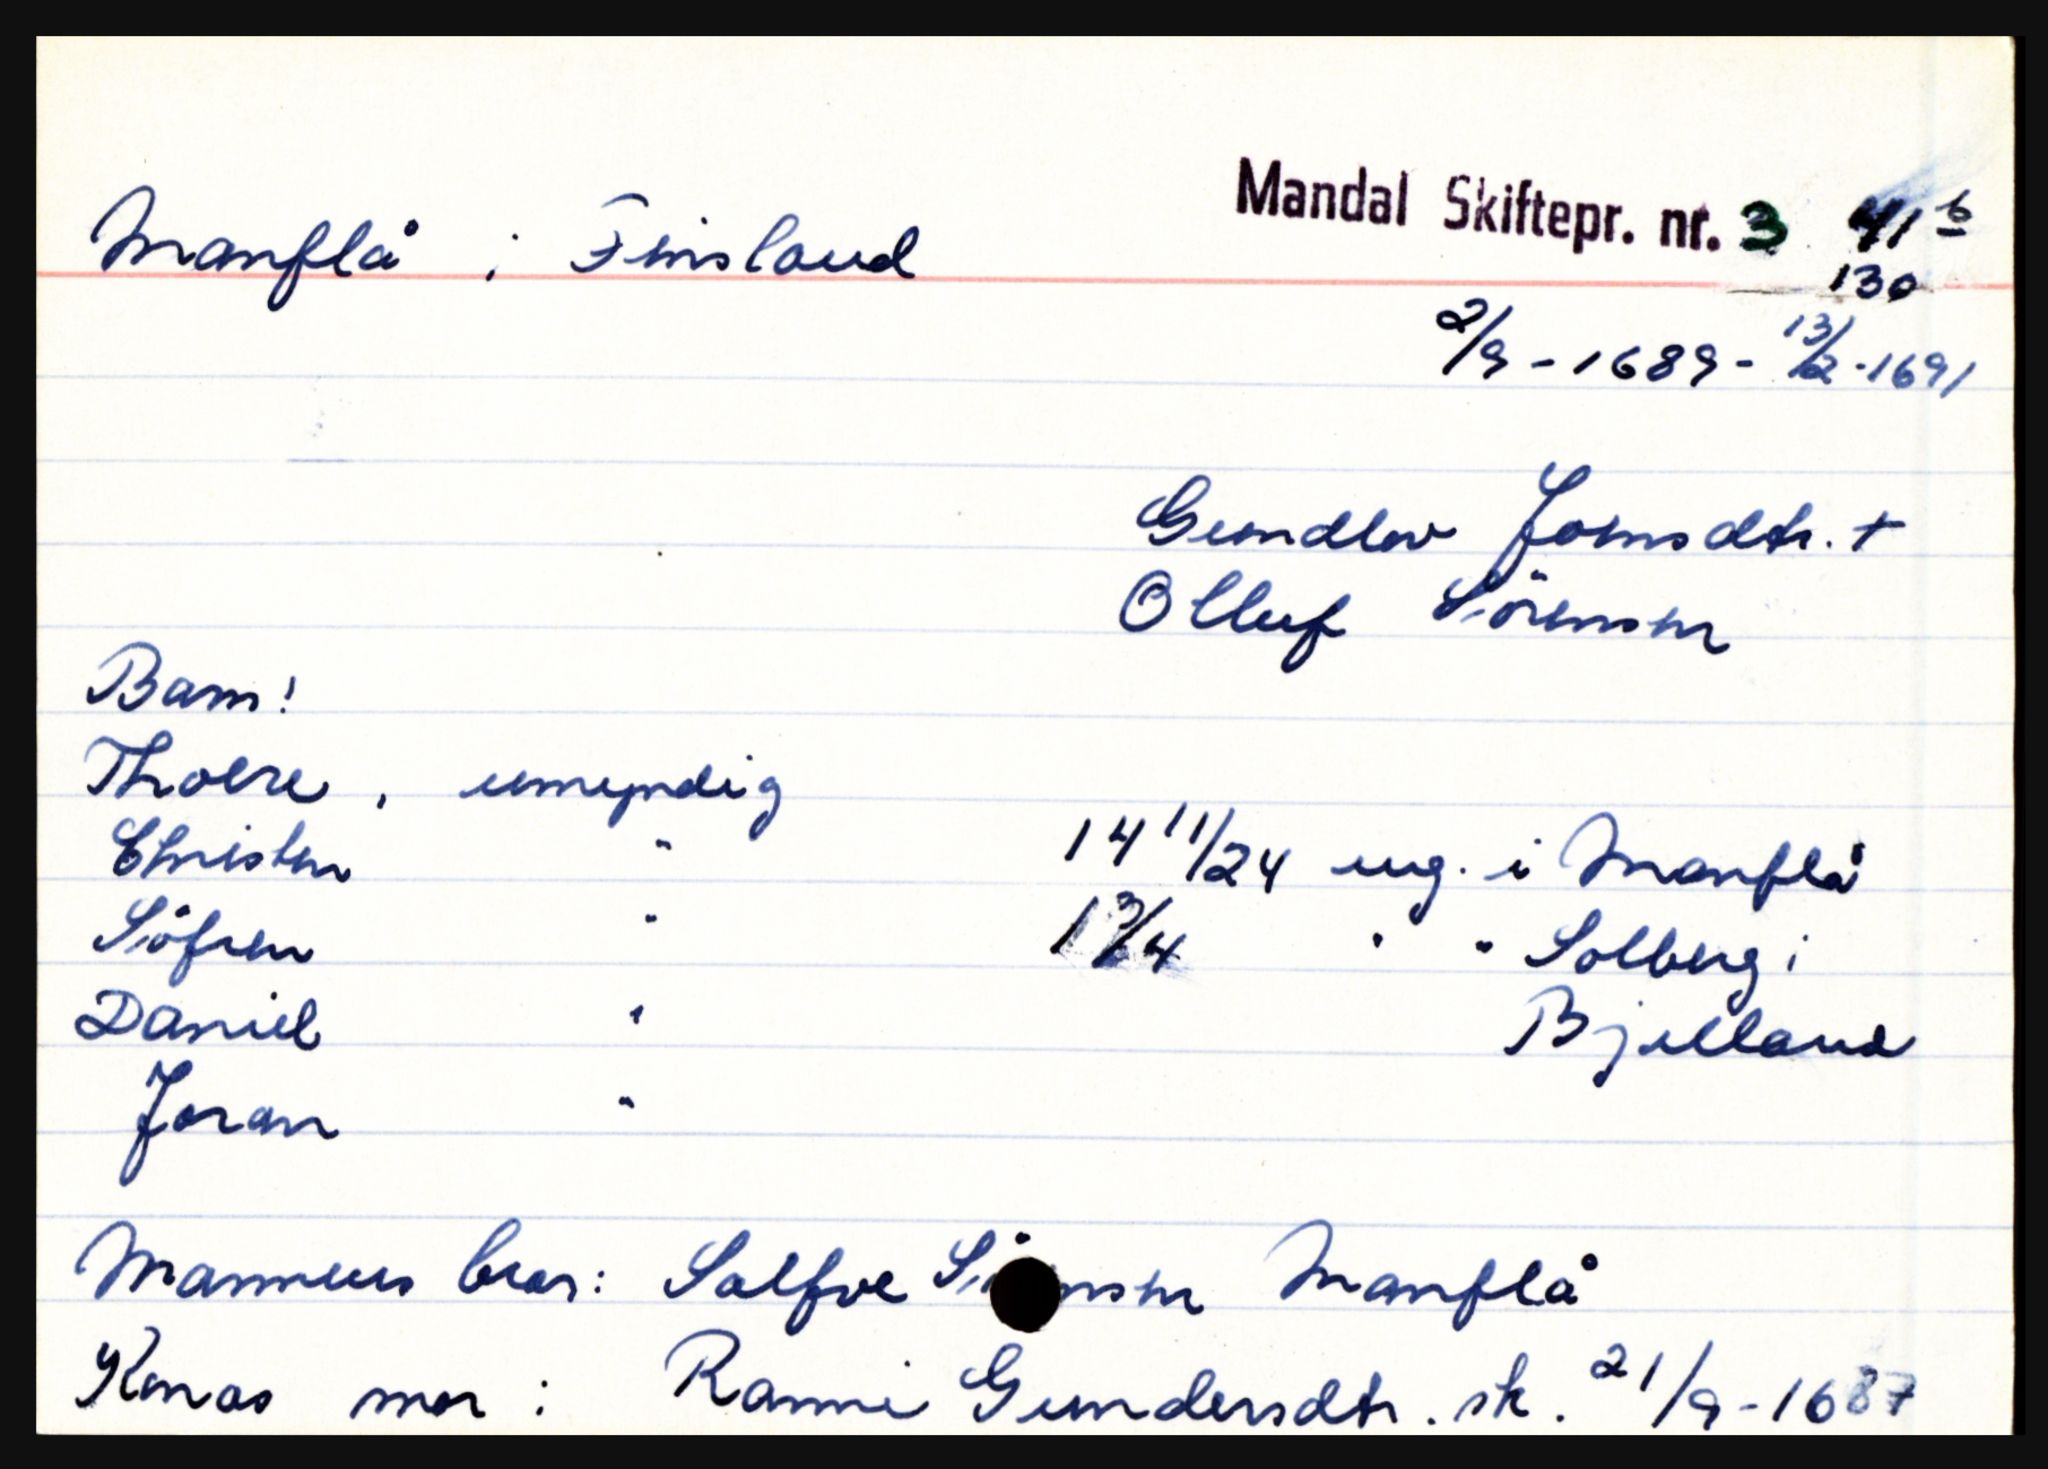 Mandal Skiftepr. nr. 3 41 b
Manflå i Finsland
130
2/9 - 1689 - 13/2 - 1691
Gundlov Jonsdtr. +
Olluf Sörensen
Barn:
Thoere, umyndig
Christen "
14 11/24 ug. i Manflå
Söfren "
1 3/4 " " Solberg i
Daniel "
Bjelland
Joran "
Mannens bror: Salfve Sörensen Manflå
Konas mor: Ranni Gundersdtr. sk. 21/9 - 1687